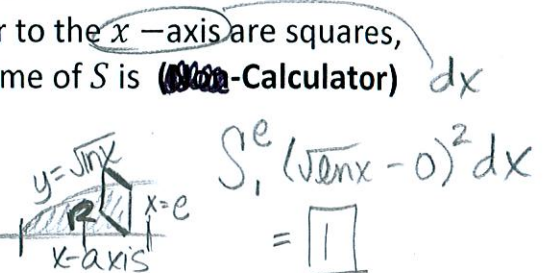 r to the x –axis are squares,
me of S is -Calculator) dx
y=√lnx
R x=e
x-axis
∫₁ᵉ (√lnx - 0)² dx
= 1